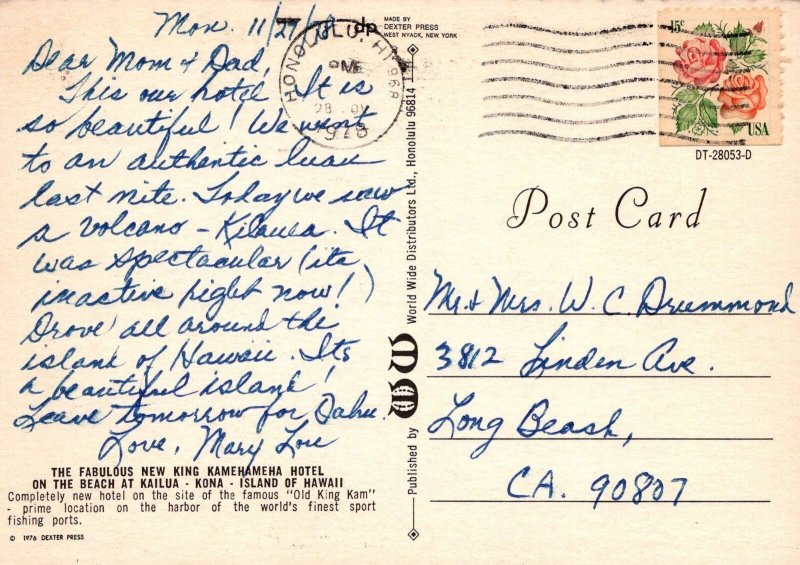 Mon. 11/27/78
Dear Mom & Dad,
This our hotel. It is
so beautiful! We went
to an authentic luau
last nite. Today we saw
a volcano - Kilauea. It
was spectacular (its
inactive right now!)
Drove all around the
island of Hawaii. Its
a beautiful island!
Leave tomorrow for Oahu.
Love, Mary Lou
THE FABULOUS NEW KING KAMEHAMEHA HOTEL
ON THE BEACH AT KAILUA - KONA - ISLAND OF HAWAII
Completely new hotel on the site of the famous "Old King Kam"
- prime location on the harbor of the world's finest sport
fishing ports.
© 1976 DEXTER PRESS
dp
MADE BY
DEXTER PRESS
WEST NYACK, NEW YORK
HONOLULU, HI 968
PM
28
1978
Published by WW World Wide Distributors Ltd., Honolulu 96814
15c
USA
DT-28053-D
Post Card
Mr. & Mrs. W. C. Drummond
3812 Linden Ave.
Long Beach,
CA. 90807